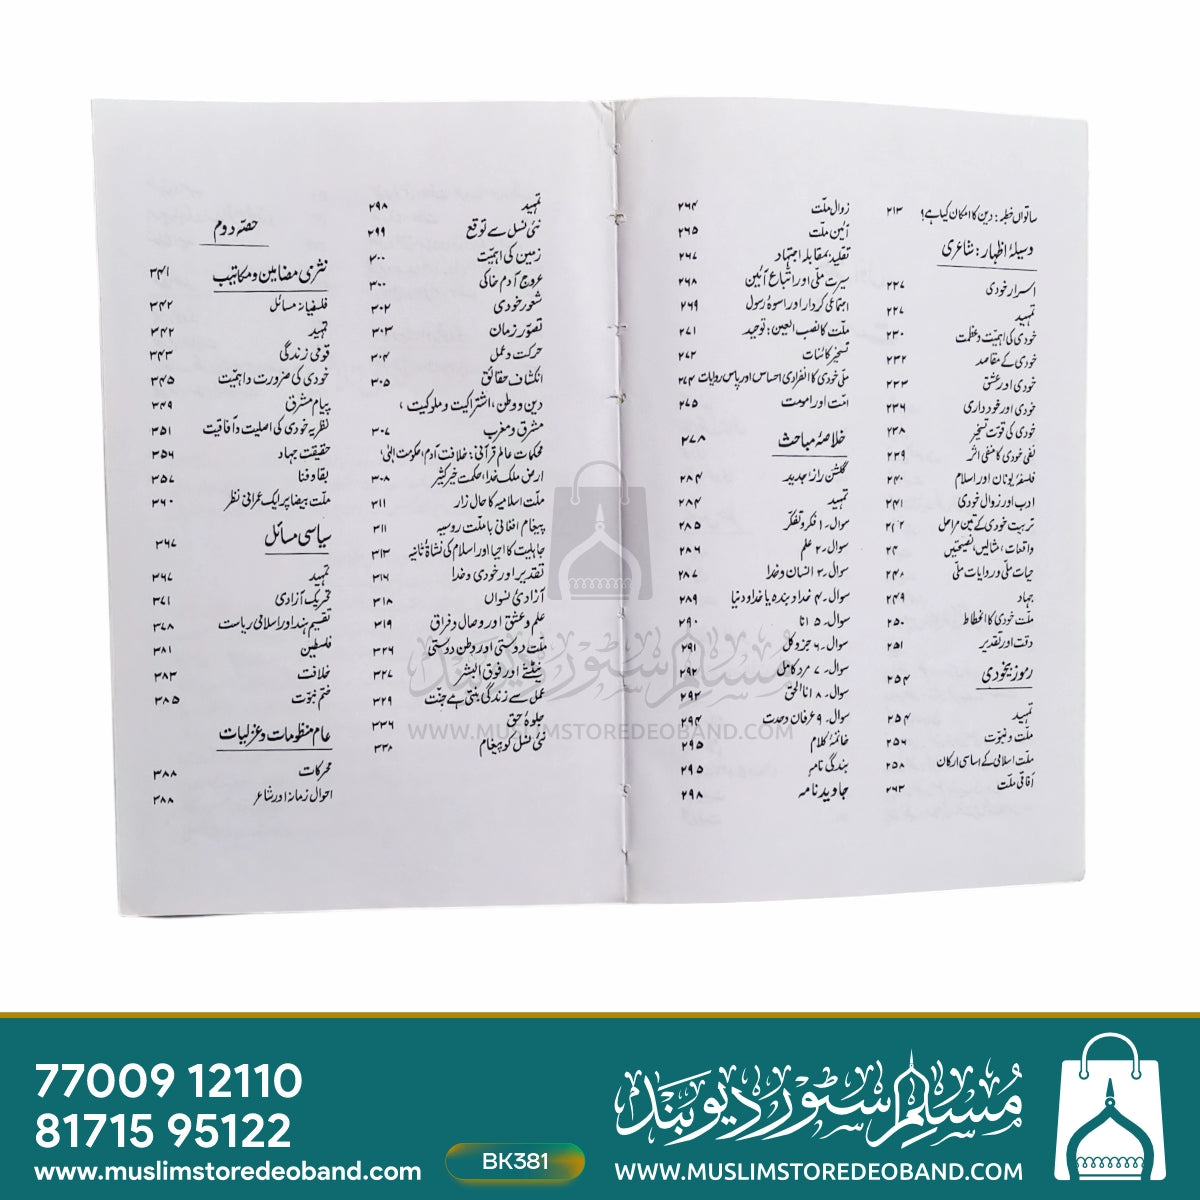 ساتواں خطبہ: دین کا امکان کیا ہے؟ ۲۱۳
وسیلۂ اظہار: شاعری
اسرار خودی ۲۲۷
تمہید ۲۲۷
خودی کی اہمیّت و عظمت ۲۳۰
خودی کے مقاصد ۲۳۲
خودی اور عشق ۲۳۳
خودی اور خود داری ۲۳۶
خودی کی قوّت تسخیر ۲۳۸
نفی خودی کا منفی اثر ۲۳۹
فلسفۂ یونان اور اسلام ۲۴۰
ادب اور زوال خودی ۲۴۱
تربیت خودی کے تین مراحل
واقعات، مثالیں، نصیحتیں
حیات ملّی و روایات ملّی ۲۴۸
جہاد ۲۴۹
ملّت خودی کا انحطاط ۲۵۰
وقت اور تقدیر ۲۵۱
رموز بیخودی ۲۵۴
تمہید ۲۵۴
ملّت و نبوّت ۲۵۶
ملّت اسلامی کے اساسی ارکان ۲۵۸
آفاقی ملّت ۲۶۳
زوال ملّت ۲۶۴
آئین ملّت ۲۶۵
تقلید بمقابلہ اجتہاد ۲۶۷
سیرت ملّی اور اتباع آئین ۲۶۸
اجتماعی کردار اور اسوۂ رسول ۲۶۹
ملّت کا نصب العین: توحید ۲۷۱
تسخیر کائنات ۲۷۲
ملّی خودی کا انفرادی احساس اور پاس روایات ۲۷۴
امّت اور امومت ۲۷۵
خلاصۂ مباحث ۲۷۸
گلشن راز جدید ۲۸۴
تمہید ۲۸۴
سوال۔ ۱ فکر و تفکّر ۲۸۵
سوال۔ ۲ علم ۲۸۶
سوال۔ ۳ انسان و خدا ۲۸۷
سوال۔ ۴ خدا و بندہ یا خدا و دنیا ۲۸۹
سوال۔ ۵ انا ۲۹۰
سوال۔ ۶ جزو کل ۲۹۱
سوال۔ ۷ مرد کامل ۲۹۲
سوال۔ ۸ انا الحق ۲۹۲
سوال۔ ۹ عرفان وحدت ۲۹۴
خاتمۂ کلام ۲۹۵
بندگی نامہ ۲۹۵
جاوید نامہ ۲۹۸
تمہید ۲۹۸
نئی نسل سے توقع ۲۹۹
زمین کی اہمیّت ۳۰۰
عروج آدم خاکی ۳۰۰
شعور خودی ۳۰۲
تصوّر زمان ۳۰۳
حرکت و عمل ۳۰۴
انکشاف حقائق ۳۰۵
دین و وطن، اشتراکیت و ملوکیت،
مشرق و مغرب ۳۰۷
محکمات عالم قرآنی: خلافت آدم، حکومت الٰہی،
ارض ملک خدا، حکمت خیر کثیر ۳۰۸
ملّت اسلامیہ کا حال زار ۳۱۱
پیغام افغانی با ملّت روسیہ ۳۱۱
جاہلیت کا احیا اور اسلام کی نشاۃ ثانیہ ۳۱۳
تقدیر اور خودی و خدا ۳۱۶
آزادیٔ نسواں ۳۱۸
علم و عشق اور وصال و فراق ۳۱۹
ملّت دوستی اور وطن دوستی ۳۲۶
نیٹشے اور فوق البشر ۳۲۷
عمل سے زندگی بنتی ہے جنّت ۳۲۹
جلوۂ حق ۳۳۶
نئی نسل کو پیغام ۳۳۸
حصّہ دوم
نثری مضامین و مکاتیب ۳۴۱
فلسفیانہ مسائل ۳۴۲
تمہید ۳۴۲
قومی زندگی ۳۴۳
خودی کی ضرورت و اہمیّت ۳۴۵
پیام مشرق ۳۴۹
نظریہ خودی کی اصلیت و آفاقیت ۳۵۱
حقیقت جہاد ۳۵۶
بقا و فنا ۳۵۷
ملّت بیضا پر ایک عمرانی نظر ۳۶۰
سیاسی مسائل ۳۶۷
تمہید ۳۶۷
تحریک آزادی ۳۷۱
تقسیم ہند اور اسلامی ریاست ۳۷۸
فلسطین ۳۸۱
خلافت ۳۸۳
ختم نبوّت ۳۸۵
عام منظومات و غزلیات
محرکات ۳۸۸
احوال زمانہ اور شاعر ۳۸۸
مسلم سٹور دیوبند
WWW.MUSLIMSTOREDEOBAND.COM
77009 12110
81715 95122
www.muslimstoredeoband.com
BK381
مسلم سٹور دیوبند
WWW.MUSLIMSTOREDEOBAND.COM